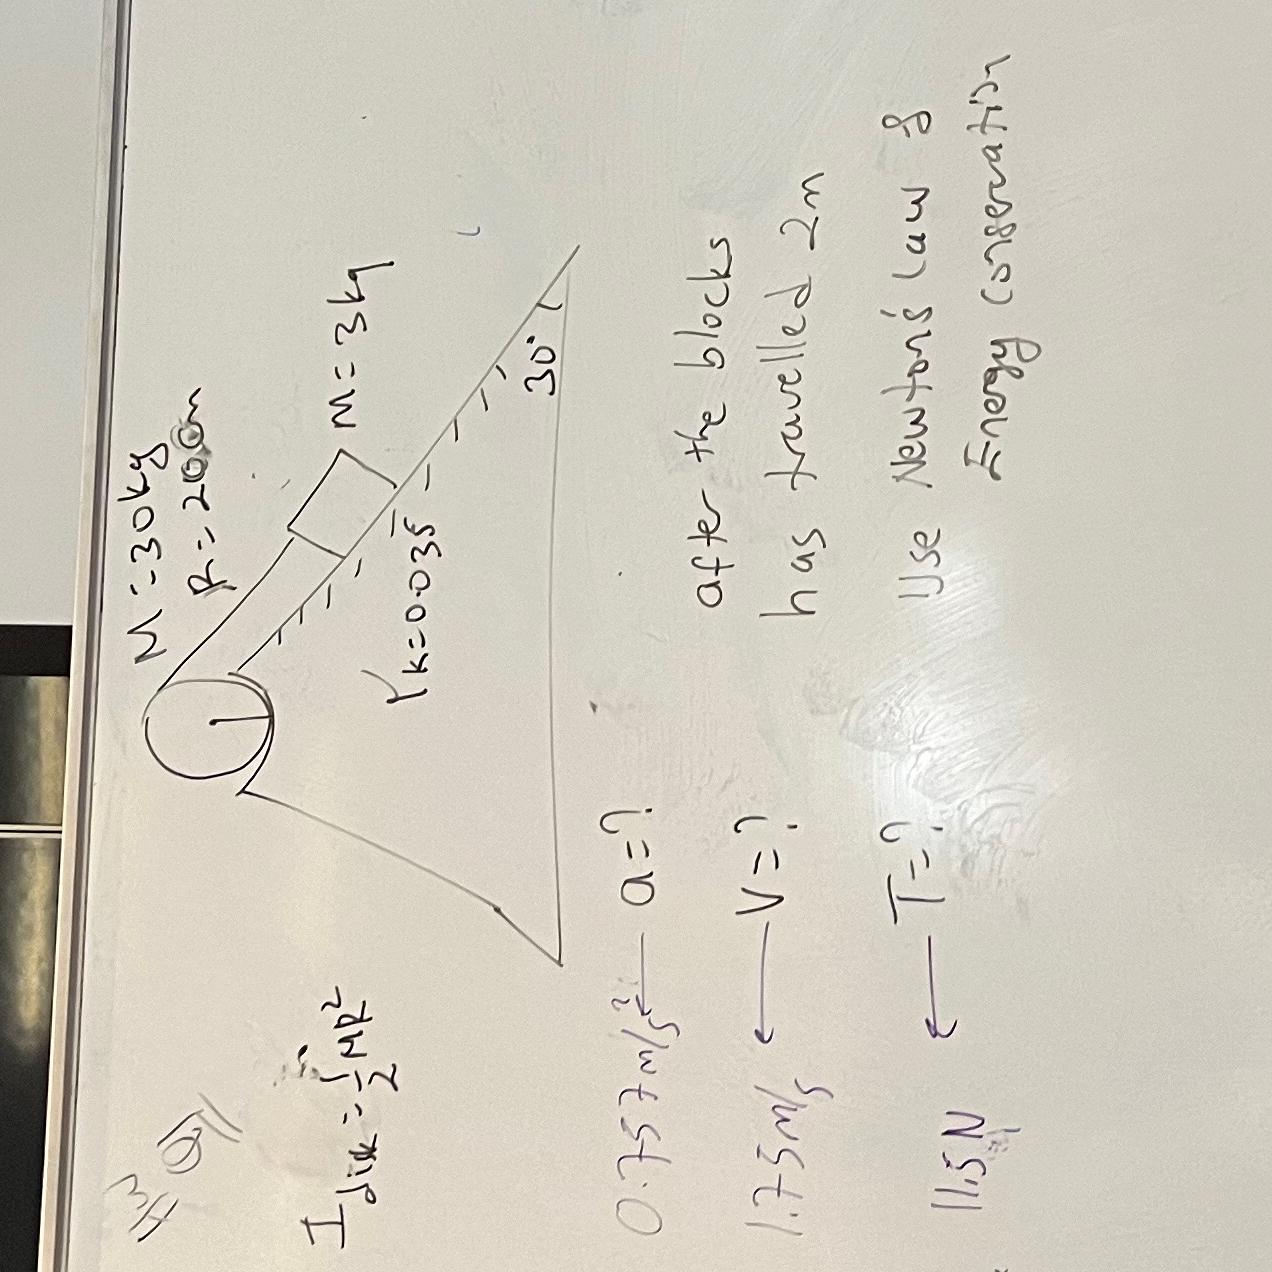 #3
M = 30kg
R = 20cm
I disk = 1/2 MR²
M = 3kg
μk = 0.035
30°
0.757 m/s² ← a = ?
after the blocks
1.75 m/s ← V = ?
has travelled 2m
11.5 N ← T = ?
Use Newton's law &
Energy conservation